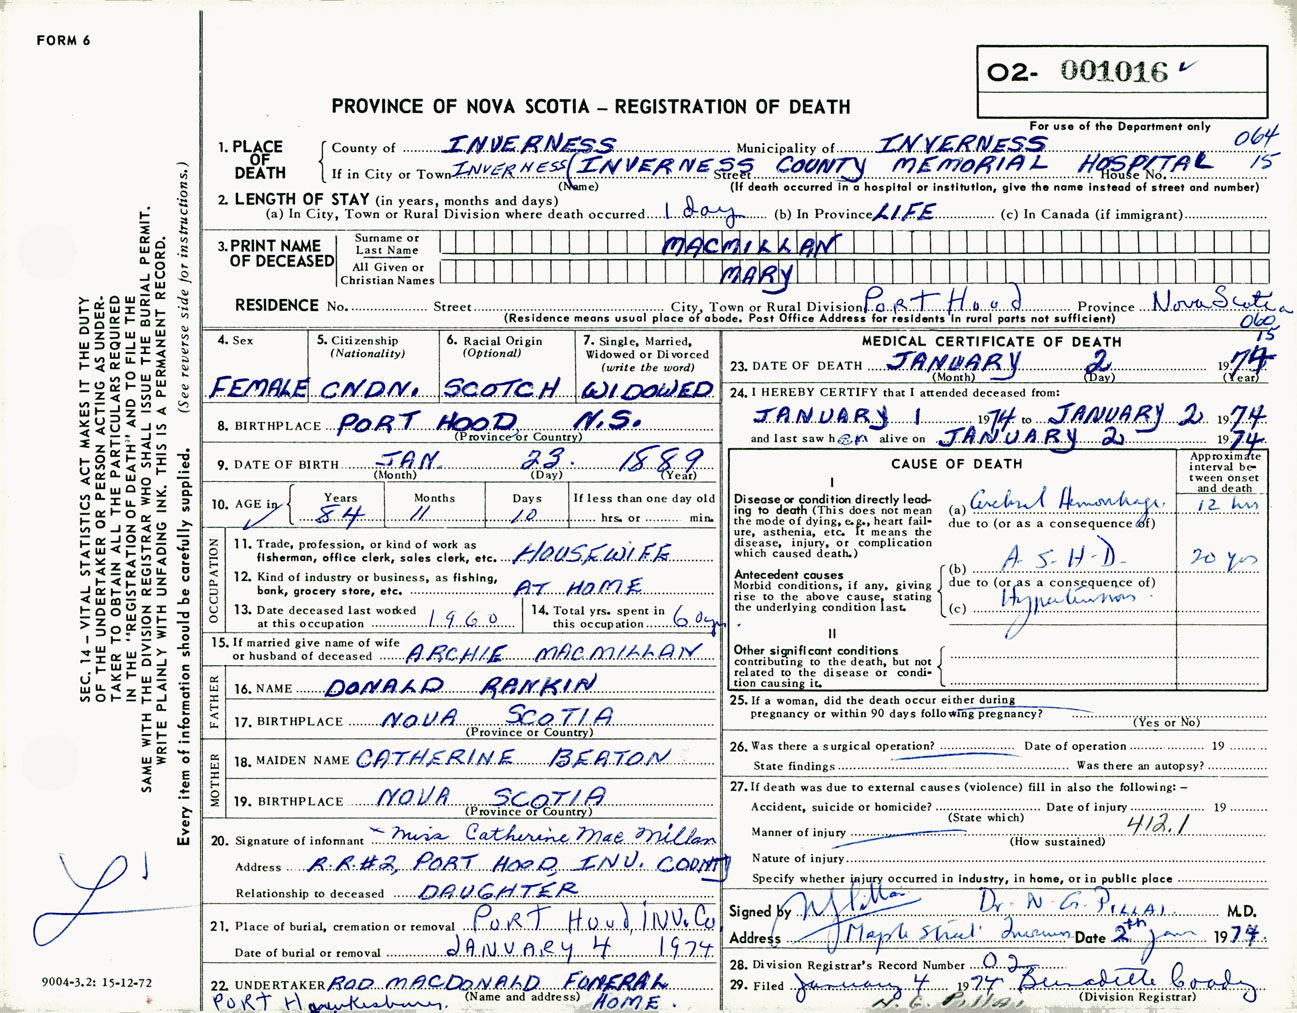 FORM 6
O2- 001016 ✓
PROVINCE OF NOVA SCOTIA – REGISTRATION OF DEATH
For use of the Department only
064
15
1. PLACE OF DEATH
County of INVERNESS Municipality of INVERNESS
If in City or Town INVERNESS (INVERNESS COUNTY MEMORIAL HOSPITAL Street House No.
(Name) (If death occurred in a hospital or institution, give the name instead of street and number)
2. LENGTH OF STAY (in years, months and days)
(a) In City, Town or Rural Division where death occurred 1 day (b) In Province LIFE (c) In Canada (if immigrant)
3. PRINT NAME OF DECEASED
Surname or Last Name MACMILLAN
All Given or Christian Names MARY
RESIDENCE No. Street City, Town or Rural Division Port Hood Province Nova Scotia
(Residence means usual place of abode. Post Office Address for residents in rural parts not sufficient)
060
15
4. Sex FEMALE
5. Citizenship (Nationality) CNDN.
6. Racial Origin (Optional) SCOTCH
7. Single, Married, Widowed or Divorced (write the word) WIDOWED
8. BIRTHPLACE PORT HOOD N.S.
(Province or Country)
9. DATE OF BIRTH JAN. 23. 1889
(Month) (Day) (Year)
10. AGE in Years Months Days If less than one day old
84 11 10 hrs. or min.
OCCUPATION
11. Trade, profession, or kind of work as fisherman, office clerk, sales clerk, etc. HOUSEWIFE
12. Kind of industry or business, as fishing, bank, grocery store, etc. AT HOME
13. Date deceased last worked at this occupation 1960
14. Total yrs. spent in this occupation 60 yrs.
15. If married give name of wife or husband of deceased ARCHIE MACMILLAN
FATHER
16. NAME DONALD RANKIN
17. BIRTHPLACE NOVA SCOTIA
(Province or Country)
MOTHER
18. MAIDEN NAME CATHERINE BEATON
19. BIRTHPLACE NOVA SCOTIA
(Province or Country)
20. Signature of informant Miss Catherine Mac Millan
Address R.R.#2, PORT HOOD, INV. COUNTY
Relationship to deceased DAUGHTER
21. Place of burial, cremation or removal PORT HOOD, INV. CO.
Date of burial or removal JANUARY 4 1974
22. UNDERTAKER ROD MACDONALD FUNERAL HOME.
(Name and address)
PORT Hawkesbury.
MEDICAL CERTIFICATE OF DEATH
23. DATE OF DEATH JANUARY 2 1974
(Month) (Day) (Year)
24. I HEREBY CERTIFY that I attended deceased from:
JANUARY 1 1974 to JANUARY 2 1974
and last saw her alive on JANUARY 2 1974
CAUSE OF DEATH
Approximate interval between onset and death
I
Disease or condition directly leading to death (This does not mean the mode of dying, e.g., heart failure, asthenia, etc. It means the disease, injury, or complication which caused death.)
(a) Cerebral Hemorrhage. 12 hrs
due to (or as a consequence of)
Antecedent causes
Morbid conditions, if any, giving rise to the above cause, stating the underlying condition last.
(b) A.S.H.D. 20 yrs
due to (or as a consequence of)
(c) Hypertension.
II
Other significant conditions contributing to the death, but not related to the disease or condition causing it.
25. If a woman, did the death occur either during pregnancy or within 90 days following pregnancy?
(Yes or No)
26. Was there a surgical operation? Date of operation 19
State findings Was there an autopsy?
27. If death was due to external causes (violence) fill in also the following: –
Accident, suicide or homicide? Date of injury 19
(State which)
412.1
Manner of injury
(How sustained)
Nature of injury
Specify whether injury occurred in industry, in home, or in public place
Signed by NG Pillai Dr. N. G. PILLAI M.D.
Address Maple Street Inverness Date 2nd Jan 1974.
28. Division Registrar's Record Number 02
29. Filed January 4 1974 Bernadette Coady
(Division Registrar)
N. G. Pillai
SEC. 14 – VITAL STATISTICS ACT MAKES IT THE DUTY
OF THE UNDERTAKER OR PERSON ACTING AS UNDER-
TAKER TO OBTAIN ALL THE PARTICULARS REQUIRED
IN THE "REGISTRATION OF DEATH" AND TO FILE THE
SAME WITH THE DIVISION REGISTRAR WHO SHALL ISSUE THE BURIAL PERMIT.
WRITE PLAINLY WITH UNFADING INK. THIS IS A PERMANENT RECORD.
Every item of information should be carefully supplied. (See reverse side for instructions.)
9004-3.2: 15-12-72